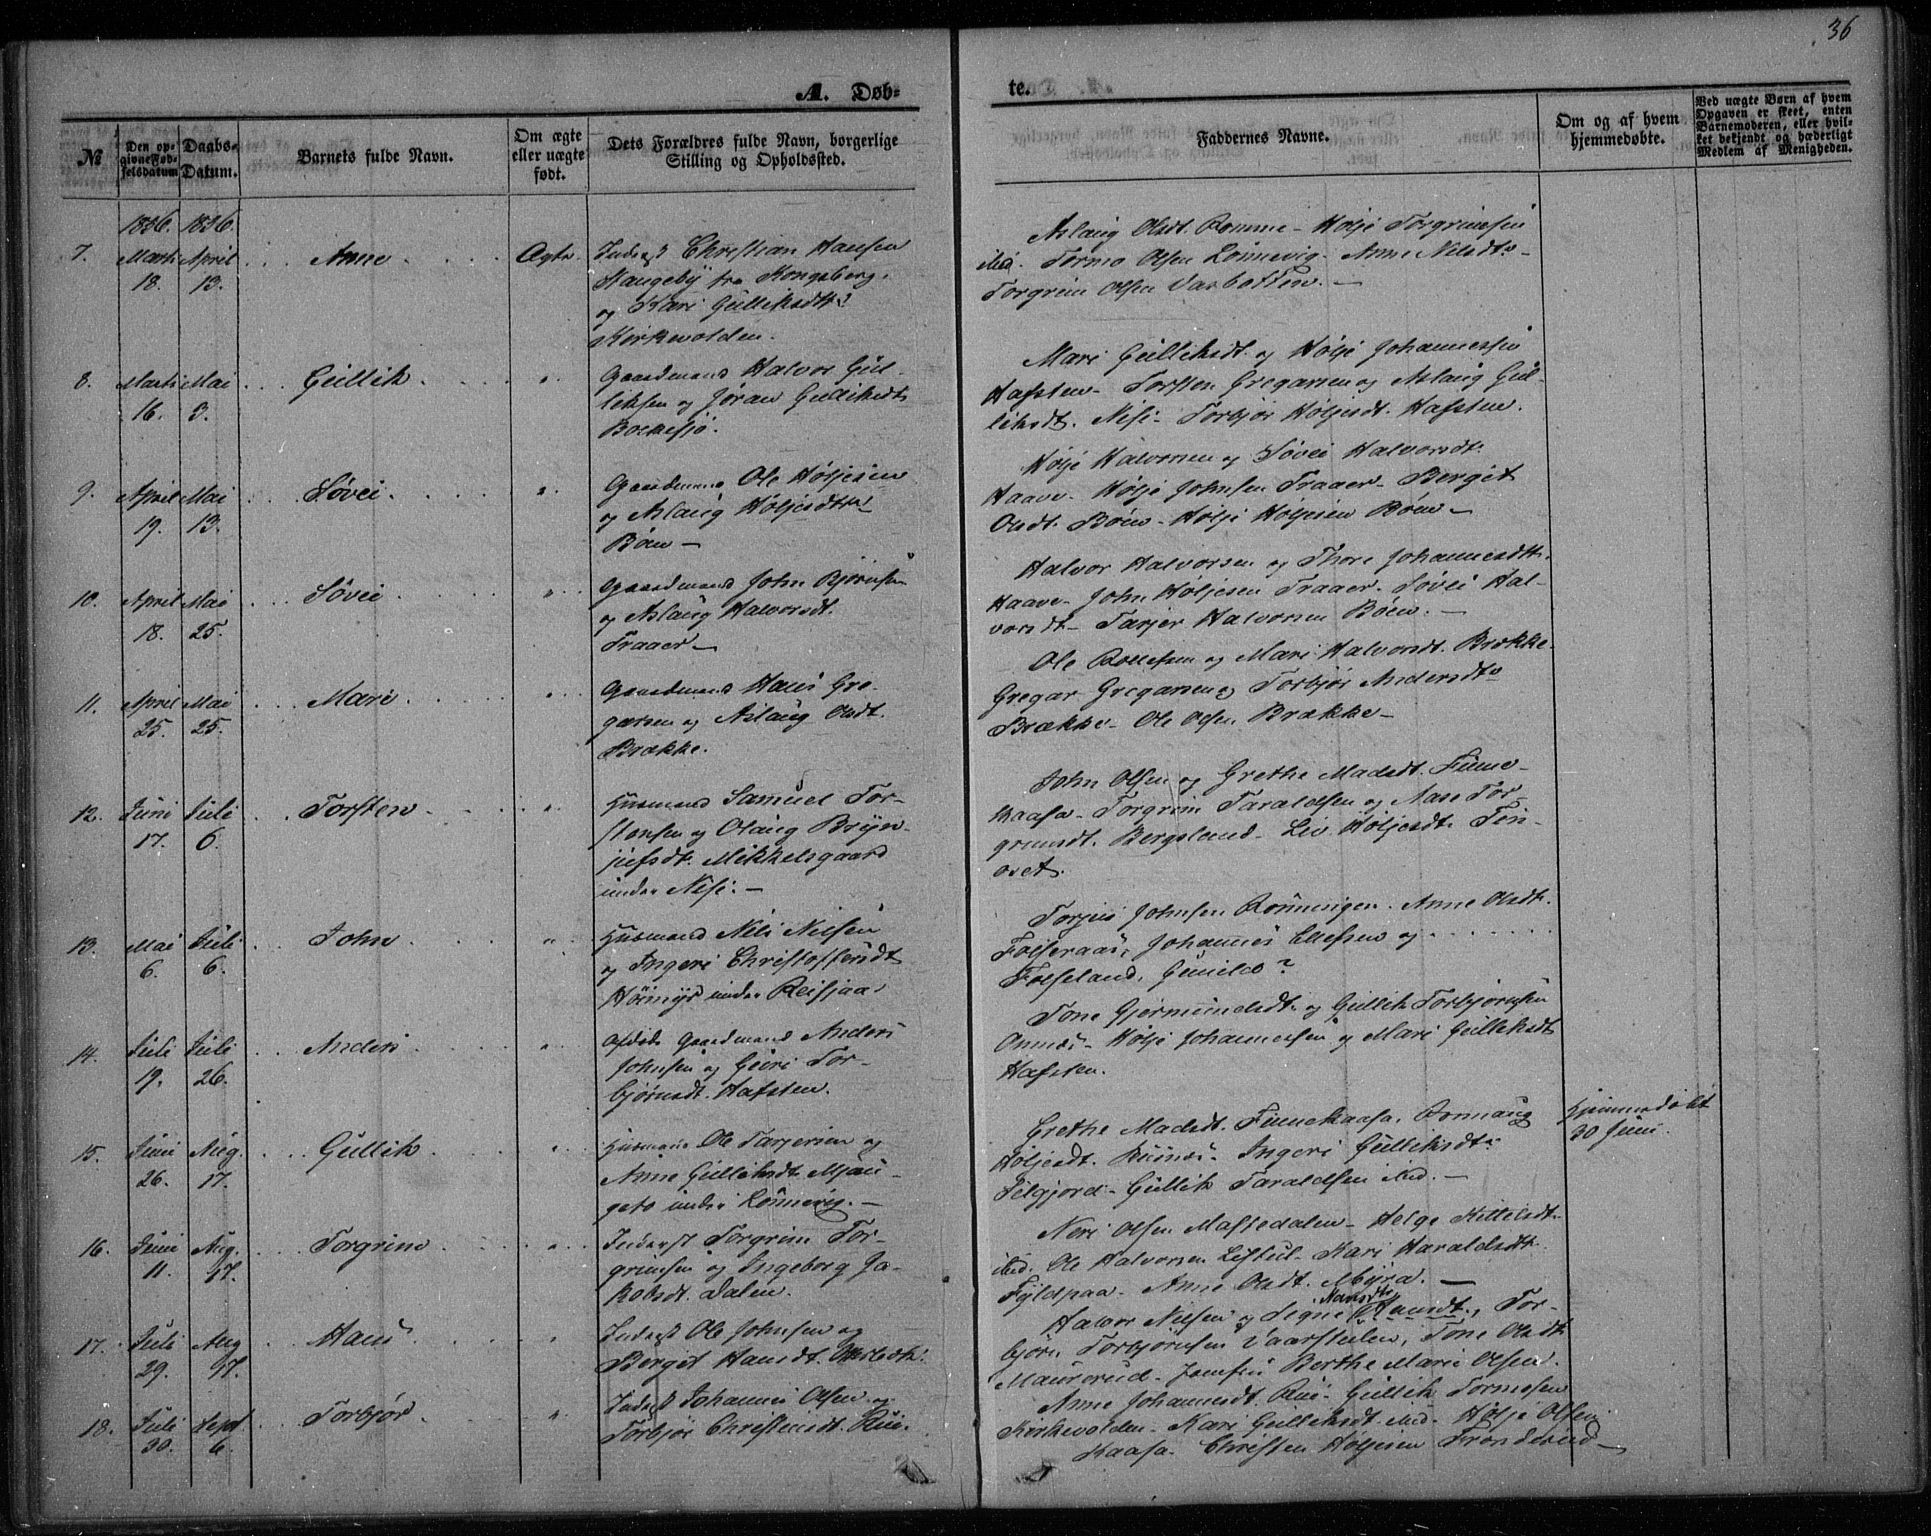 36
A. Døb-
te.
№
Den op-
givne Fød-
selsdatum
Daabs-
Datum.
Barnets fulde Navn.
Om ægte
eller uægte
født.
Dets Forældres fulde Navn, borgerlige
Stilling og Opholdssted.
Faddernes Navne.
Om og af hvem
hjemmedøbte.
Ved uægte Børn af hvem
Opgaven er skeet, enten
Barnemoderen, eller hvil-
ket bekjendt og hæderligt
Medlem af Menigheden.
1856. 1856.
7. Marti 18. April 13. Anne Ægte.
Inderst Christian Hansen
Haugeby fra Kongsberg
og Kari Gulliksdtr
Kirkevolden.
Aslaug Olsdt. Romme - Hølje Torgrimsen
ibid. Tormo Olsen Lonnevig. Anne Nilsdtr
Torgrim Olsen Varbotten. -
8. Marti 16. Mai 3. Gullik "
Gaardmand Halvor Gul-
liksen og Jøran Gulliksdt
Bolkesjø.
Mari Gulliksdt. og Hølje Johannessen
Hafsten - Torsten Gregarsen og Aslaug Gul-
liksdt. Nisi - Torbjør Høljesdt. Hafsten.
9. April 19. Mai 13. Løvei "
Gaardmand Ole Høljesen
og Aslaug Høljesdtr
Bøen -
Hølje Halvorsen og Søvei Halvorsdt.
Haave - Hølje Johnsen Traaer - Bergit
Olsdt. Bøen - Hølje Høljesen Bøen -
10. April 18. Mai 25. Søvei "
Gaardmand John Bjørnsen
og Aslaug Halvorsdt.
Traaer -
Halvor Halvorsen og Thore Johannesdtr.
Haave - John Høljesen Traaer - Søvei Hal-
vorsdt - Tarjer Halvorsen Bøen. -
11. April 25. Mai 25. Mari "
Gaardmand Hans Gre-
garsen og Aslaug Olsdt.
Brække.
Ole Rollefsen og Mari Halvorsdt. Brække.
Gregar Gregarsen og Torbjør Andersdtr
Brække - Ole Olsen Brække -
12. Juni 17. Juli 6. Torsten "
Husmand Samuel Tor-
stensen og Olaug Bryn-
julfsdt. Mikkelsgaard
under Nisi. -
John Olsen og Grethe Madsdt. Finne-
kaasa - Torgrim Taraldsen og Aase Tor-
grimsdt. Bergsland - Liv Høljesdt. Tin-
oset.
13. Mai 6. Juli 6. John "
Husmand Nils Nilsen
og Ingeri Christoffersdt
under Reisjaa.
Torjus Johnsen Rønningen. Anne Olsdt.
Folseraas, Johannes Ellefsen og
Folseland, Gunild?
14. Juli 19. Juli 26. Anders "
Afdøde Gaardmand Anders
Johnsen og Guri Tor-
bjørnsdt. Hafsten.
Tone Gjermundsdt. og Gullik Torbjørnsen
Hølje Johannessen og Mari Gulliksdt
Hafsten.
15. Juni 26. Aug. 17. Gullik "
Husmand Ole Tarjersen og
Anne Gulliksdt. Mjau-
geto under Lonnevig. -
Grethe Madsdt. Finnekaasa, Ronnaug
Høljesdt. Ingeri Gulliksdtr
Gullik Taraldsen ibid. -
Hjemmedøbt
30 Juni.
16. Juni 11. Aug. 17. Torgrim "
Inderst Torgrim Tor-
grimsen og Ingeborg Ja-
kobsdt. Dalen.
Neri Olsen Mastedalen - Helge Kittilsdt.
ibid. Ole Halvorsen Listul. Kari Haraldsdt.
Anne Olsdt. Myra. -
17. Juli 29. Aug 17. Hans "
Inderst Ole Johnsen og
Bergit Hansdt.
Halvor Nielsen og Signe Hansdt, Tor-
bjørn Torbjørnsen Vaarstulen, Tone Olsdt
Maurerud - Berthe Marie Olsen.
18. Juli 30. Sept 6. Torbjør "
Inderst Johannes Olsen og
Torbjør Christensdt. Rui.
Anne Johannesdt. Rui - Gullik Tormosen
Kirkevolden - Kari Gulliksdt. ibid. Hølje Olsen
Kaasa - Christen Høljesen -